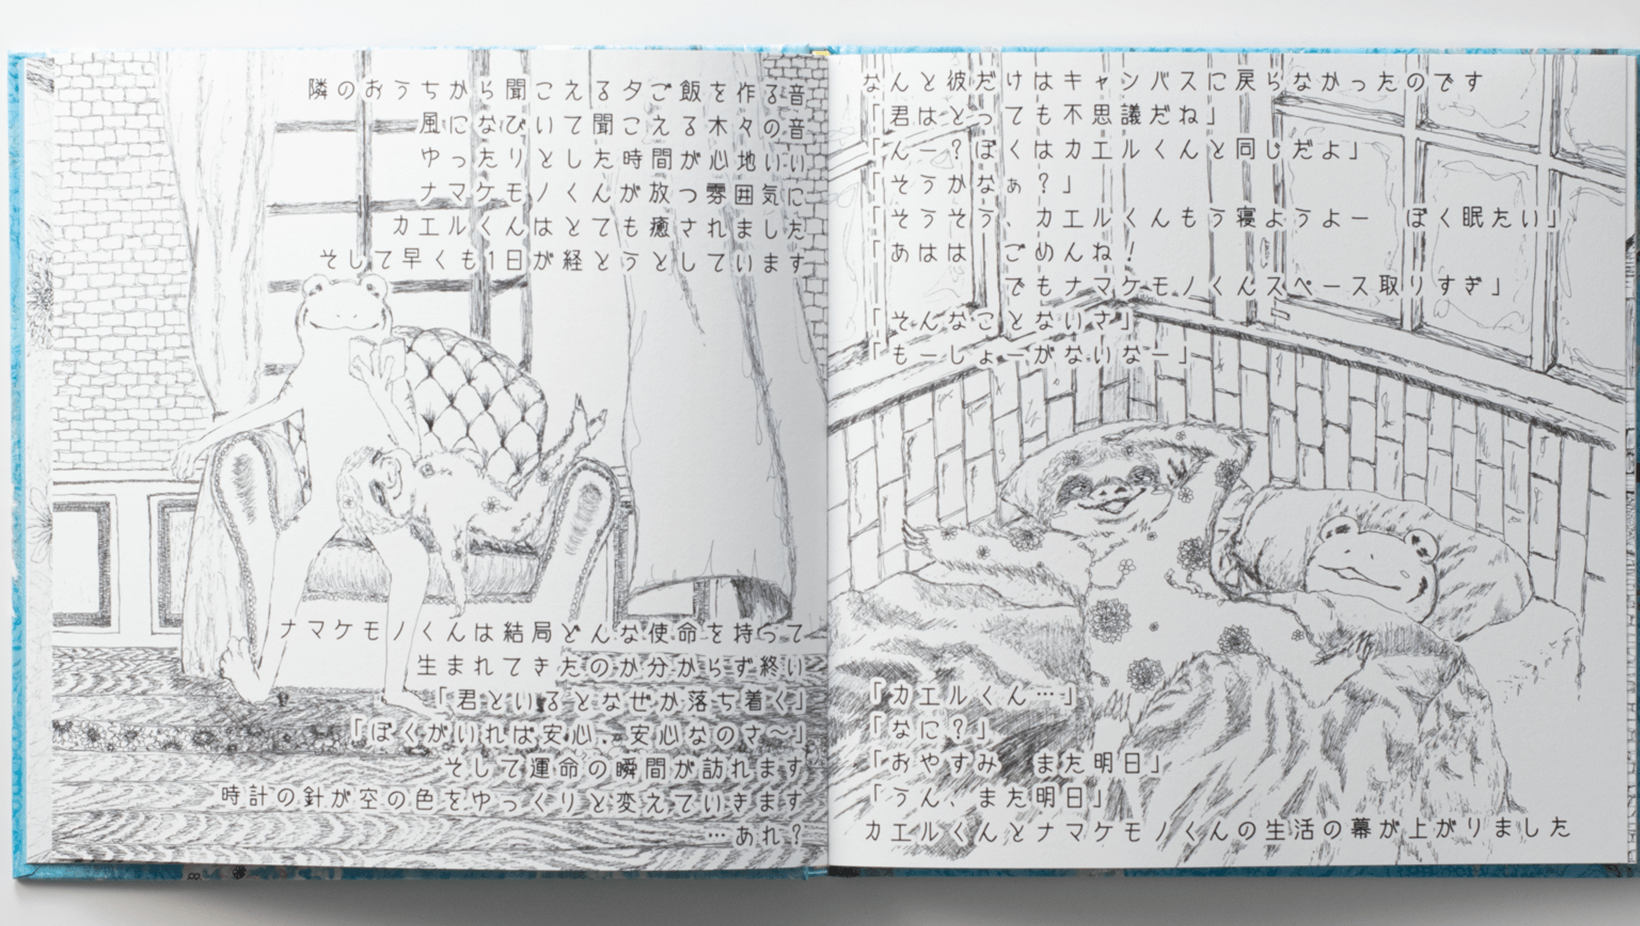 隣のおうちから聞こえる夕ご飯を作る音
風になびいて聞こえる木々の音
ゆったりとした時間が心地いい
ナマケモノくんが放つ雰囲気に
カエルくんはとても癒されました
そして早くも1日が経とうとしています
ナマケモノくんは結局どんな使命を持って
生まれてきたのか分からず終い
「君といるとなぜか落ち着く」
「ぼくがいれは安心、安心なのさ〜」
そして運命の瞬間が訪れます
時計の針が空の色をゆっくりと変えていきます
…あれ？
なんと彼だけはキャンバスに戻らなかったのです
「君はとっても不思議だね」
「んー？ぼくはカエルくんと同じだよ」
「そうかなぁ？」
「そうそう、カエルくんもう寝ようよー　ぼく眠たい」
「あはは　ごめんね！
でもナマケモノくんスペース取りすぎ」
「そんなことないさ」
「もーしょーがないなー」
「カエルくん…」
「なに？」
「おやすみ　また明日」
「うん、また明日」
カエルくんとナマケモノくんの生活の幕が上がりました